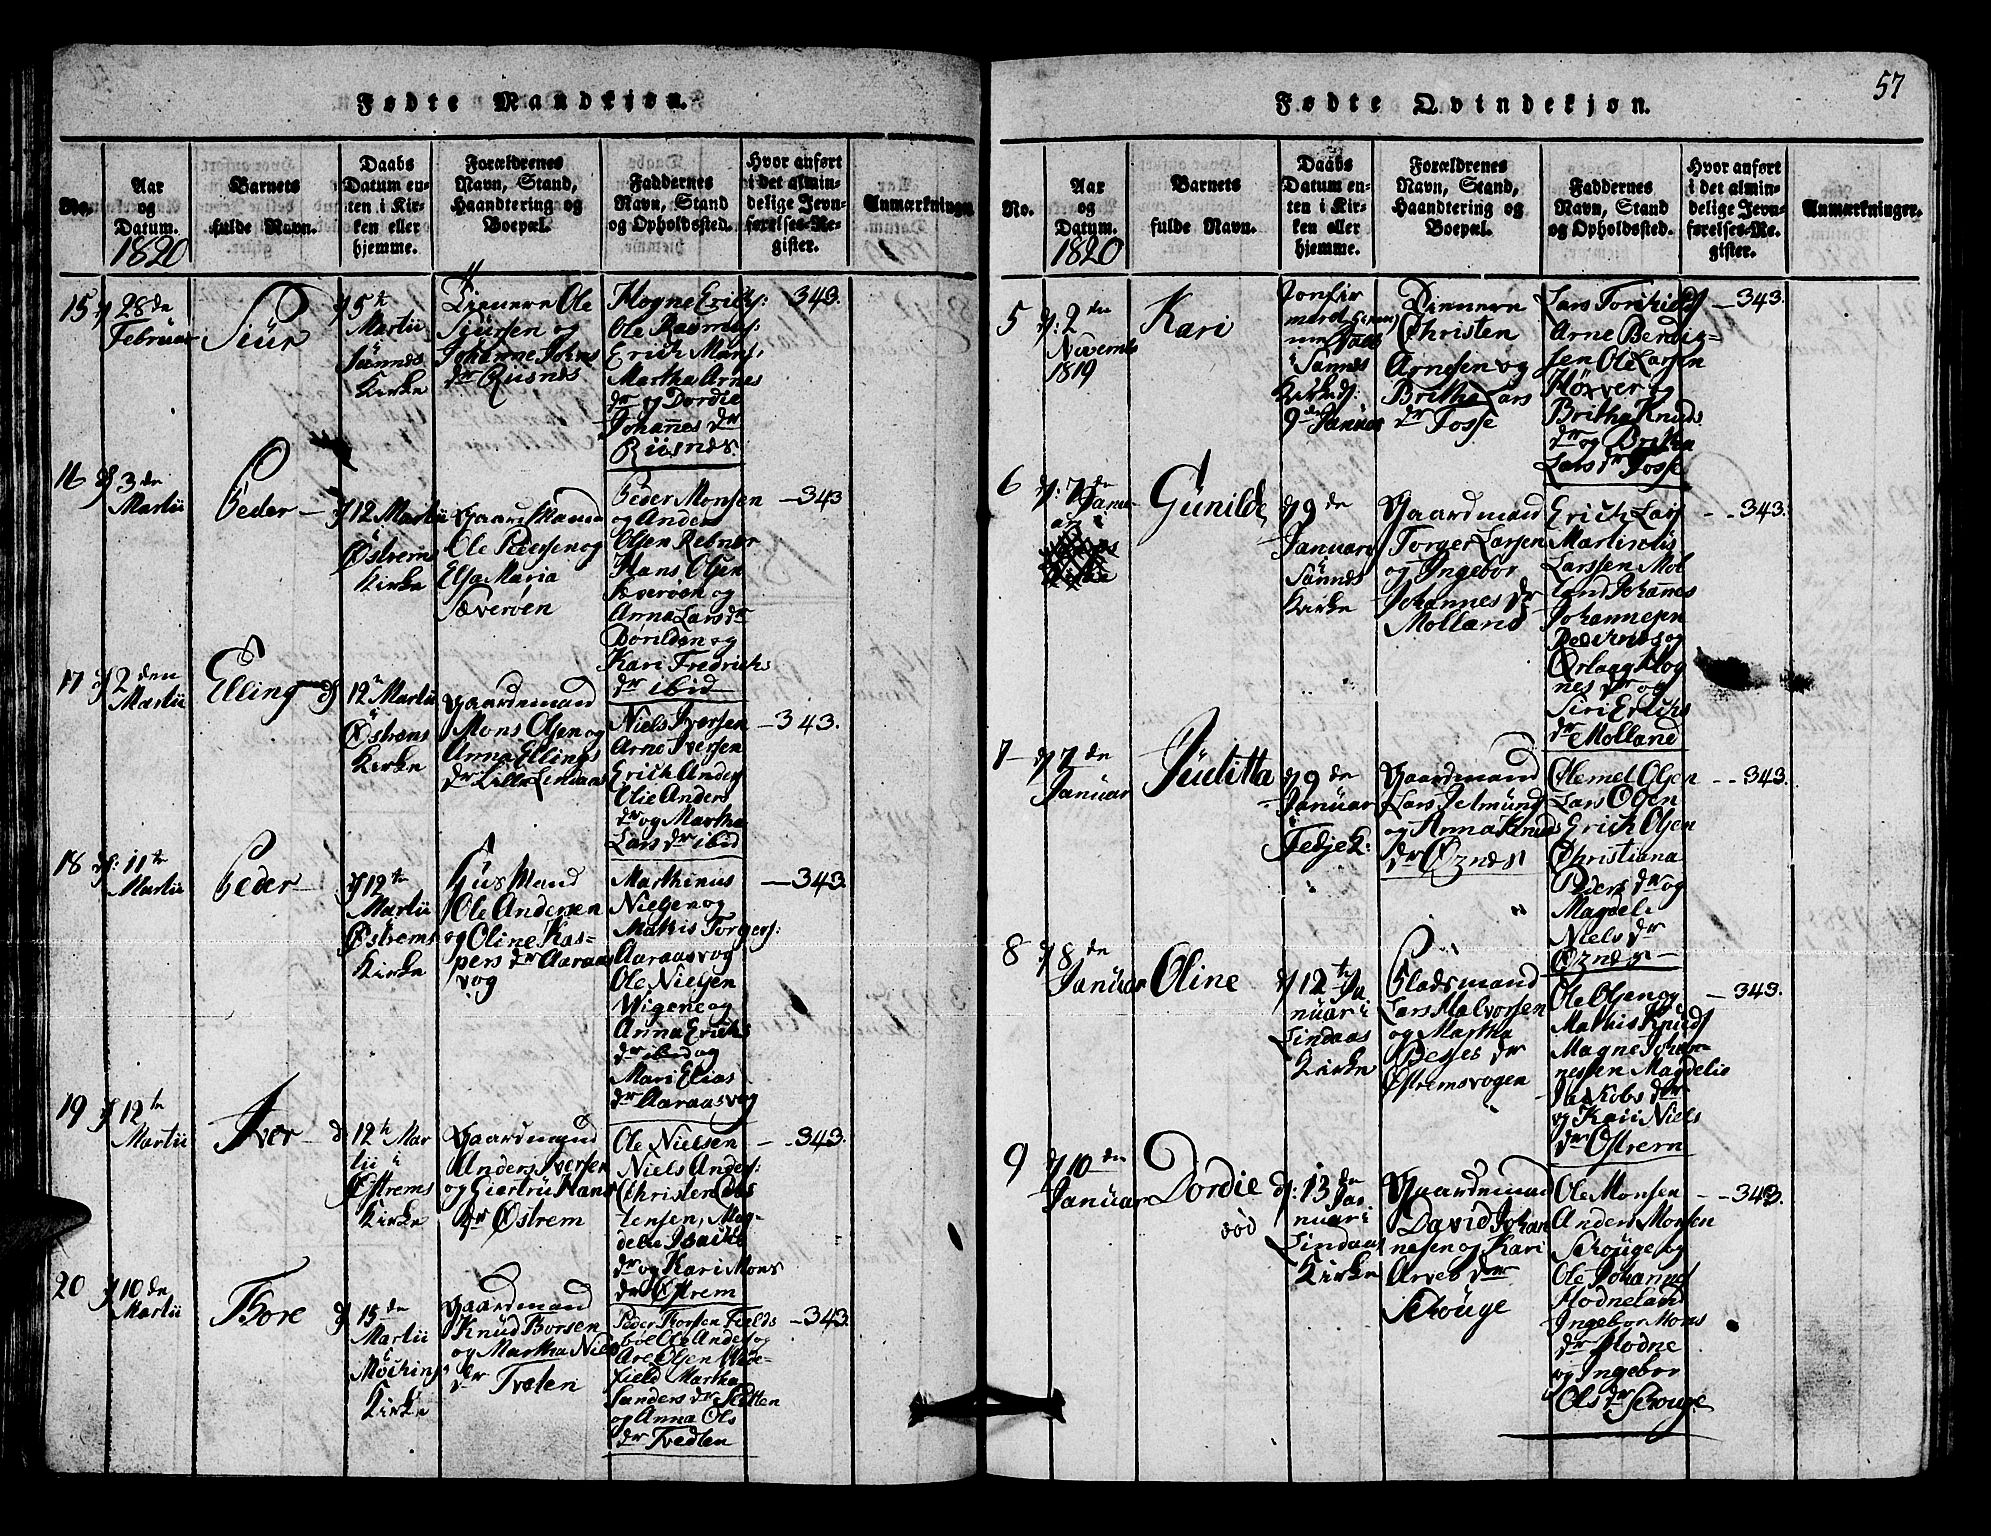 57
Fødte Mandkjøn.
No.
Aar
og
Datum.
1820
Barnets
fulde Navn.
Daabs
Datum en-
ten i Kir-
ken eller
hjemme.
Forældrenes
Navn, Stand,
Haandtering og
Boepæl.
Faddernes
Navn, Stand
og Opholdssted.
Hvor anført
i det almin-
delige Jevn-
førelses-Re-
gister.
Anmærkninger
15
28de
Februar
Siür
5t
Martii
i
Sannes
Kirke
Ole
Siürsen og
Johanne Johns
dr Riisnes
Hogne Erichs:
Ole Rasmus:
Erich Mons:
Martha Arnes
dr og Dordie
Johannes dr
Riisnes
343.
16
3de
Martii
Peder
12 Martii
i
Østrems
Kirke
Gaardmand
Ole Pedersen og
Elsa Maria
Sæverøen
Peder Monsen
og Anders
Olsen Rebnor
Hans Olsen
Sæverøen og
Anna Lars dr
Børilden og
Kari Fredrichs
dr ibid
343
17
2den
Martii
Elling
12 Martii
i
Østrems
Kirke
Gaardemand
Mons Olsen og
Anna Ellings
dr Lille Lindaas
Niels Iversen
Arne Iversen
Erich Anders
Olie Anders
dr og Martha
Lars dr ibid
343.
18
11te
Martii
Peder
12te
Martii
Østrems
Kirke
Huusmand
Ole Andersen
og Oline Kas-
pers dr Aaraas
vog
Marthinus
Nielsen og
Mathis Torgers:
Aaraasvog
Ole Nielsen
Wigene og
Anna Erichs
dr ibid og
Mari Elias
dr Aaraasvog
343.
19
12te
Martii
Iver
12te Mar
tii i
Østrems
Kirke
Gaardmand
Anders Iversen
og Giertru Hans
dr Østrem
Ole Nielsen
Niels Anders:
Christen Cas
tensen, Mag-
deli Isacks
dr og Kari Mons
dr Østrem
343.
20
10de
Martii
Thore
15de
Martii
i
Kirke
Gaardmand
Knud Borsen
og Martha Niels
dr Tveten
Peder Thorsen Fields
bøe Ole Anders og
Are Olsen Wide-
field Martha
Sanders dr Sletten
og Anna Ols
dr Tvedten
343.
Fødte Qvindekjøn.
No.
Aar
og
Datum.
1820
Barnets
fulde Navn.
Daabs
Datum en-
ten i Kir-
ken eller
hjemme.
Forældrenes
Navn, Stand,
Haandtering og
Boepæl.
Faddernes
Navn, Stand
og Opholdssted.
Hvor anført
i det almin-
delige Jevn-
førelses-Re-
gister.
Anmærkninger.
5
2den
Novemb
1819
Kari
i Sannes
Kirke d:
9de Januar
Christen
Arnesen og
Britha Lars
dr Fosse
Lars Torchilds
Arne Berdis-
sen Ole Larsen
Høxver og
Britha Knuds
dr og Britha
Lars dr Fosse
343.
6
7de
Janu
ar i
Gunilde
9de
Januari
Sannes
Kirke
Gaardmand
Torger Larsen
og Ingebor
Johannes dr
Molland
Erich Lars
Martinus
Larssen Mol
land Johannes
Johannesen
Pedersnes og
Ørlaag Hog
nes dr og
Siri Erichs
dr Molland
343.
7
7de
Januar
Juditta
9de
Januar
i
Fedje K:
Gaardmand
Lars Selmund
og Anna Knuds
dr Øznesi
Olemel Olsen
Lars Olsen
Erich Olsen
Christiana
Peders dr og
Magdeli
Niels dr
Øznesi
343.
8
8de
Januar
Oline
12te Ja
nuar i
Lindaas
Kirke
Pladsmand
Lars Halvorsen
og Martha
dr
Østremsvogen
Ole Olsen og
Mathis Knuds
Magne Johan-
nessen Magdelie
Jackobs dr
og Kari Niels
dr Østrem
343.
9
10de
Januar
Dordie
død
13de
Ja
nuar i
Lindaas
Kirke
Gaardmand
David Johan
nesen og Kari
Arnes dr
Schouge
Ole Monsen
Anders Monsen
Schouge og
Ole Johannes
Hodneland
Ingebor Mons
dr Hodne
og Ingebor
Ols dr Schouge
343.